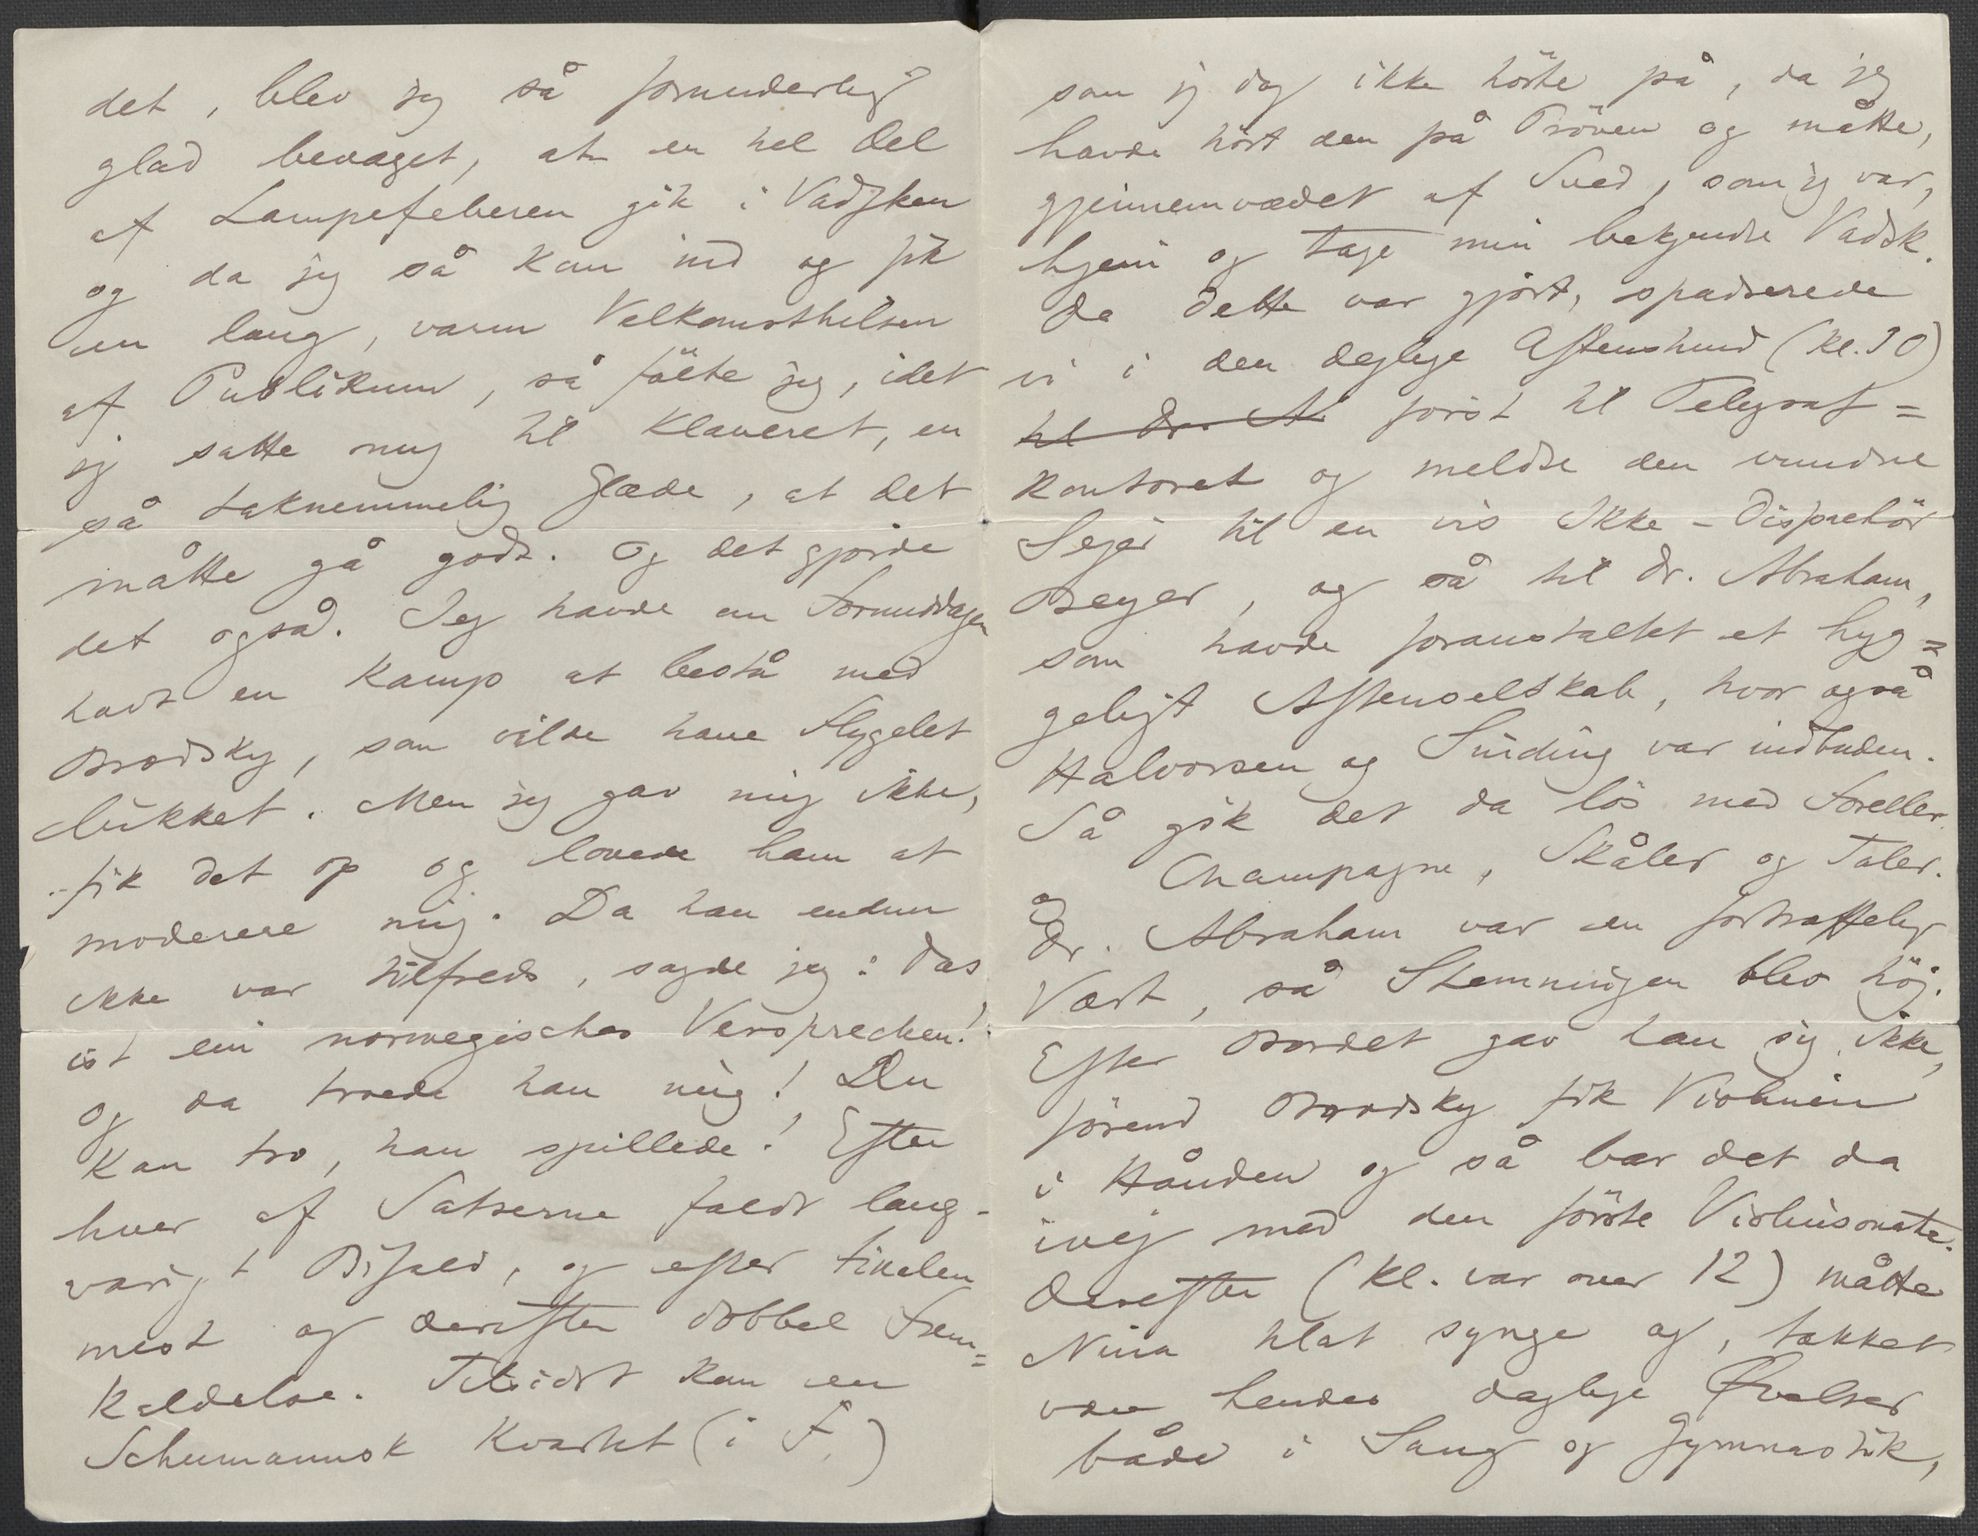 det, blev jeg så forunderlig
glad bevæget, at en hel Del
af Lampefeberen gik i Vadsken
og da jeg så kom ind og fik
en lang, varm Velkomsthilsen
af Publikum, så fölte jeg, idet
jeg satte mig til Klaveret, en
så taknemmelig Glæde, at det
måtte gå godt. Og det gjorde
det også. Jeg havde om Formiddagen
havt en Kamp at bestå med
Brodsky, som vilde have Flygelet
lukket. Men jeg gav mig ikke,
fik det op og lovede ham at
moderere mig. Da han endnu
ikke var tilfreds, sagde jeg: Das
ist ein norwegisches Versprechen!
og da troede han mig! Du
kan tro, han spillede! Efter
hver af Satserne faldt lang-
varigt Bifald, og efter Finalen
mest og derefter dobbel Frem=
kaldelse. Tilsidst kom en
Schumannsk Kvartet (i F.)
som jeg dog ikke hörte på, da jeg
havde hört den på Pröven og måtte,
gjennemvædet af Sved, som jeg var,
hjem og tage min bekjendte Vadsk.
Da dette var gjört, spadserede
vi i den dejlige Aftenstund (kl. 10)
til Dr. A först til Telegraf=
kontoret og meldte den vundne
Sejer til en vis Ikke-Disprehör
Beyer, og så til Dr. Abraham,
som havde foranstaltet et hyg=
geligt Aftenselskab, hvor også
Halvorsen og Sinding var indbuden.
Så gik det da lös med Foreller
og Champagne, Skåler og Taler.
Dr. Abraham var en fortræffelig
Vært, så Stemningen blev höj.
Efter Bordet gav han sig ikke,
förend Brodsky fik Violinen
i Hånden og så bar det da
ivej med den förste Violinsonate.
Derefter (kl. var over 12) måtte
Nina til at synge og, takket
være hendes daglige Øvelser
både i Sang og Gymnastik,